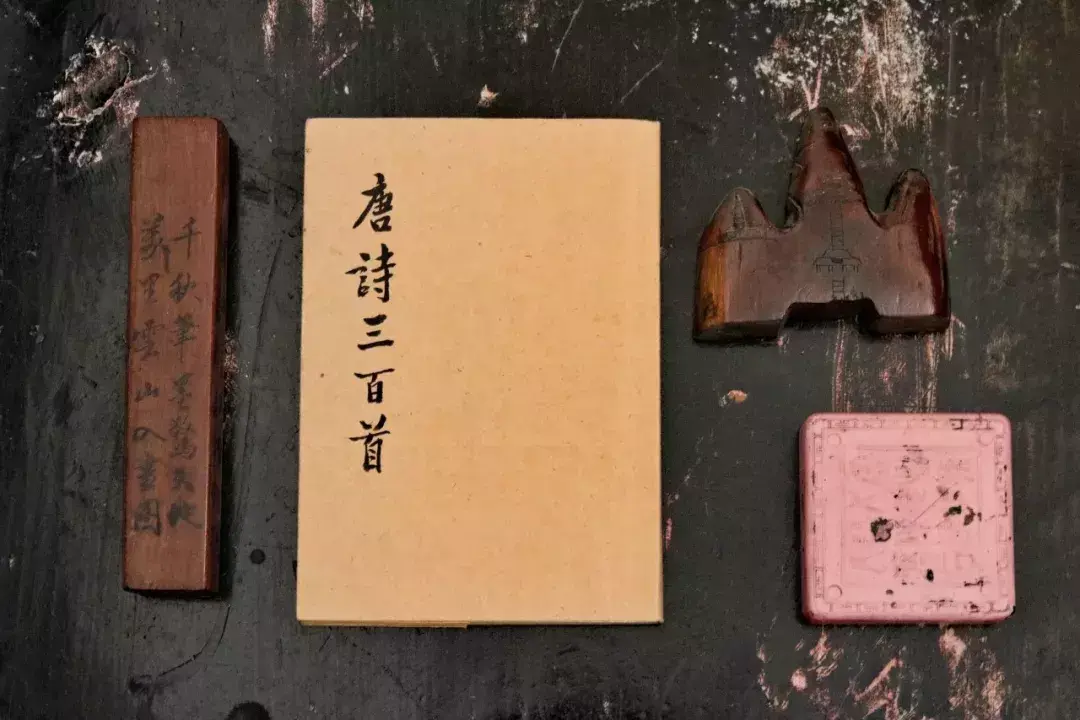 千秋筆墨驚天地
萬里雲山入畫圖
唐詩三百首